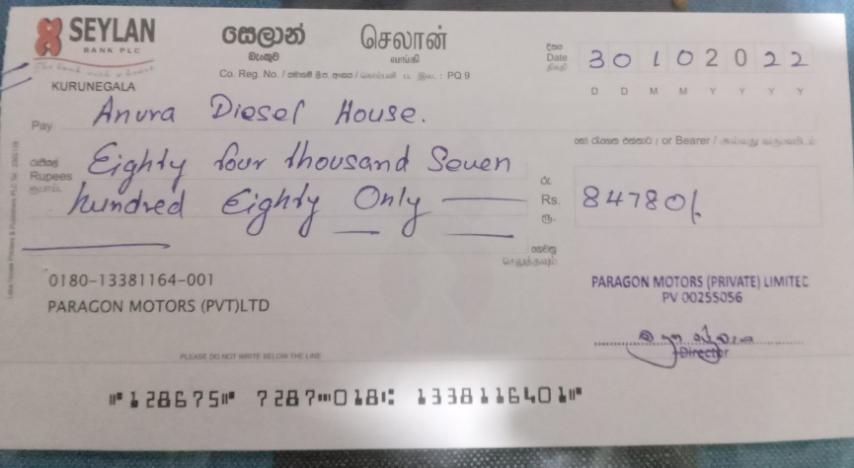 SEYLAN
BANK PLC
KURUNEGALA
සෙලාන්
බැංකුව
செலான்
வங்கி
Co. Reg. No. / PQ 9
දිනය
Date
திகதி
30102022
D D M M Y Y Y Y
Pay Anura Diesel House.
or Bearer /
රුපියල්
Rupees
ரூபாய்
Eighty four thousand Seven
hundred Eighty Only
රු.
Rs.
ரூ.
84780/.
0180-13381164-001
PARAGON MOTORS (PVT)LTD
PARAGON MOTORS (PRIVATE) LIMITED
PV 00255056
Director
PLEASE DO NOT WRITE BELOW THE LINE
⑈128675⑈ 7287⑉018⑆ 1338116401⑈